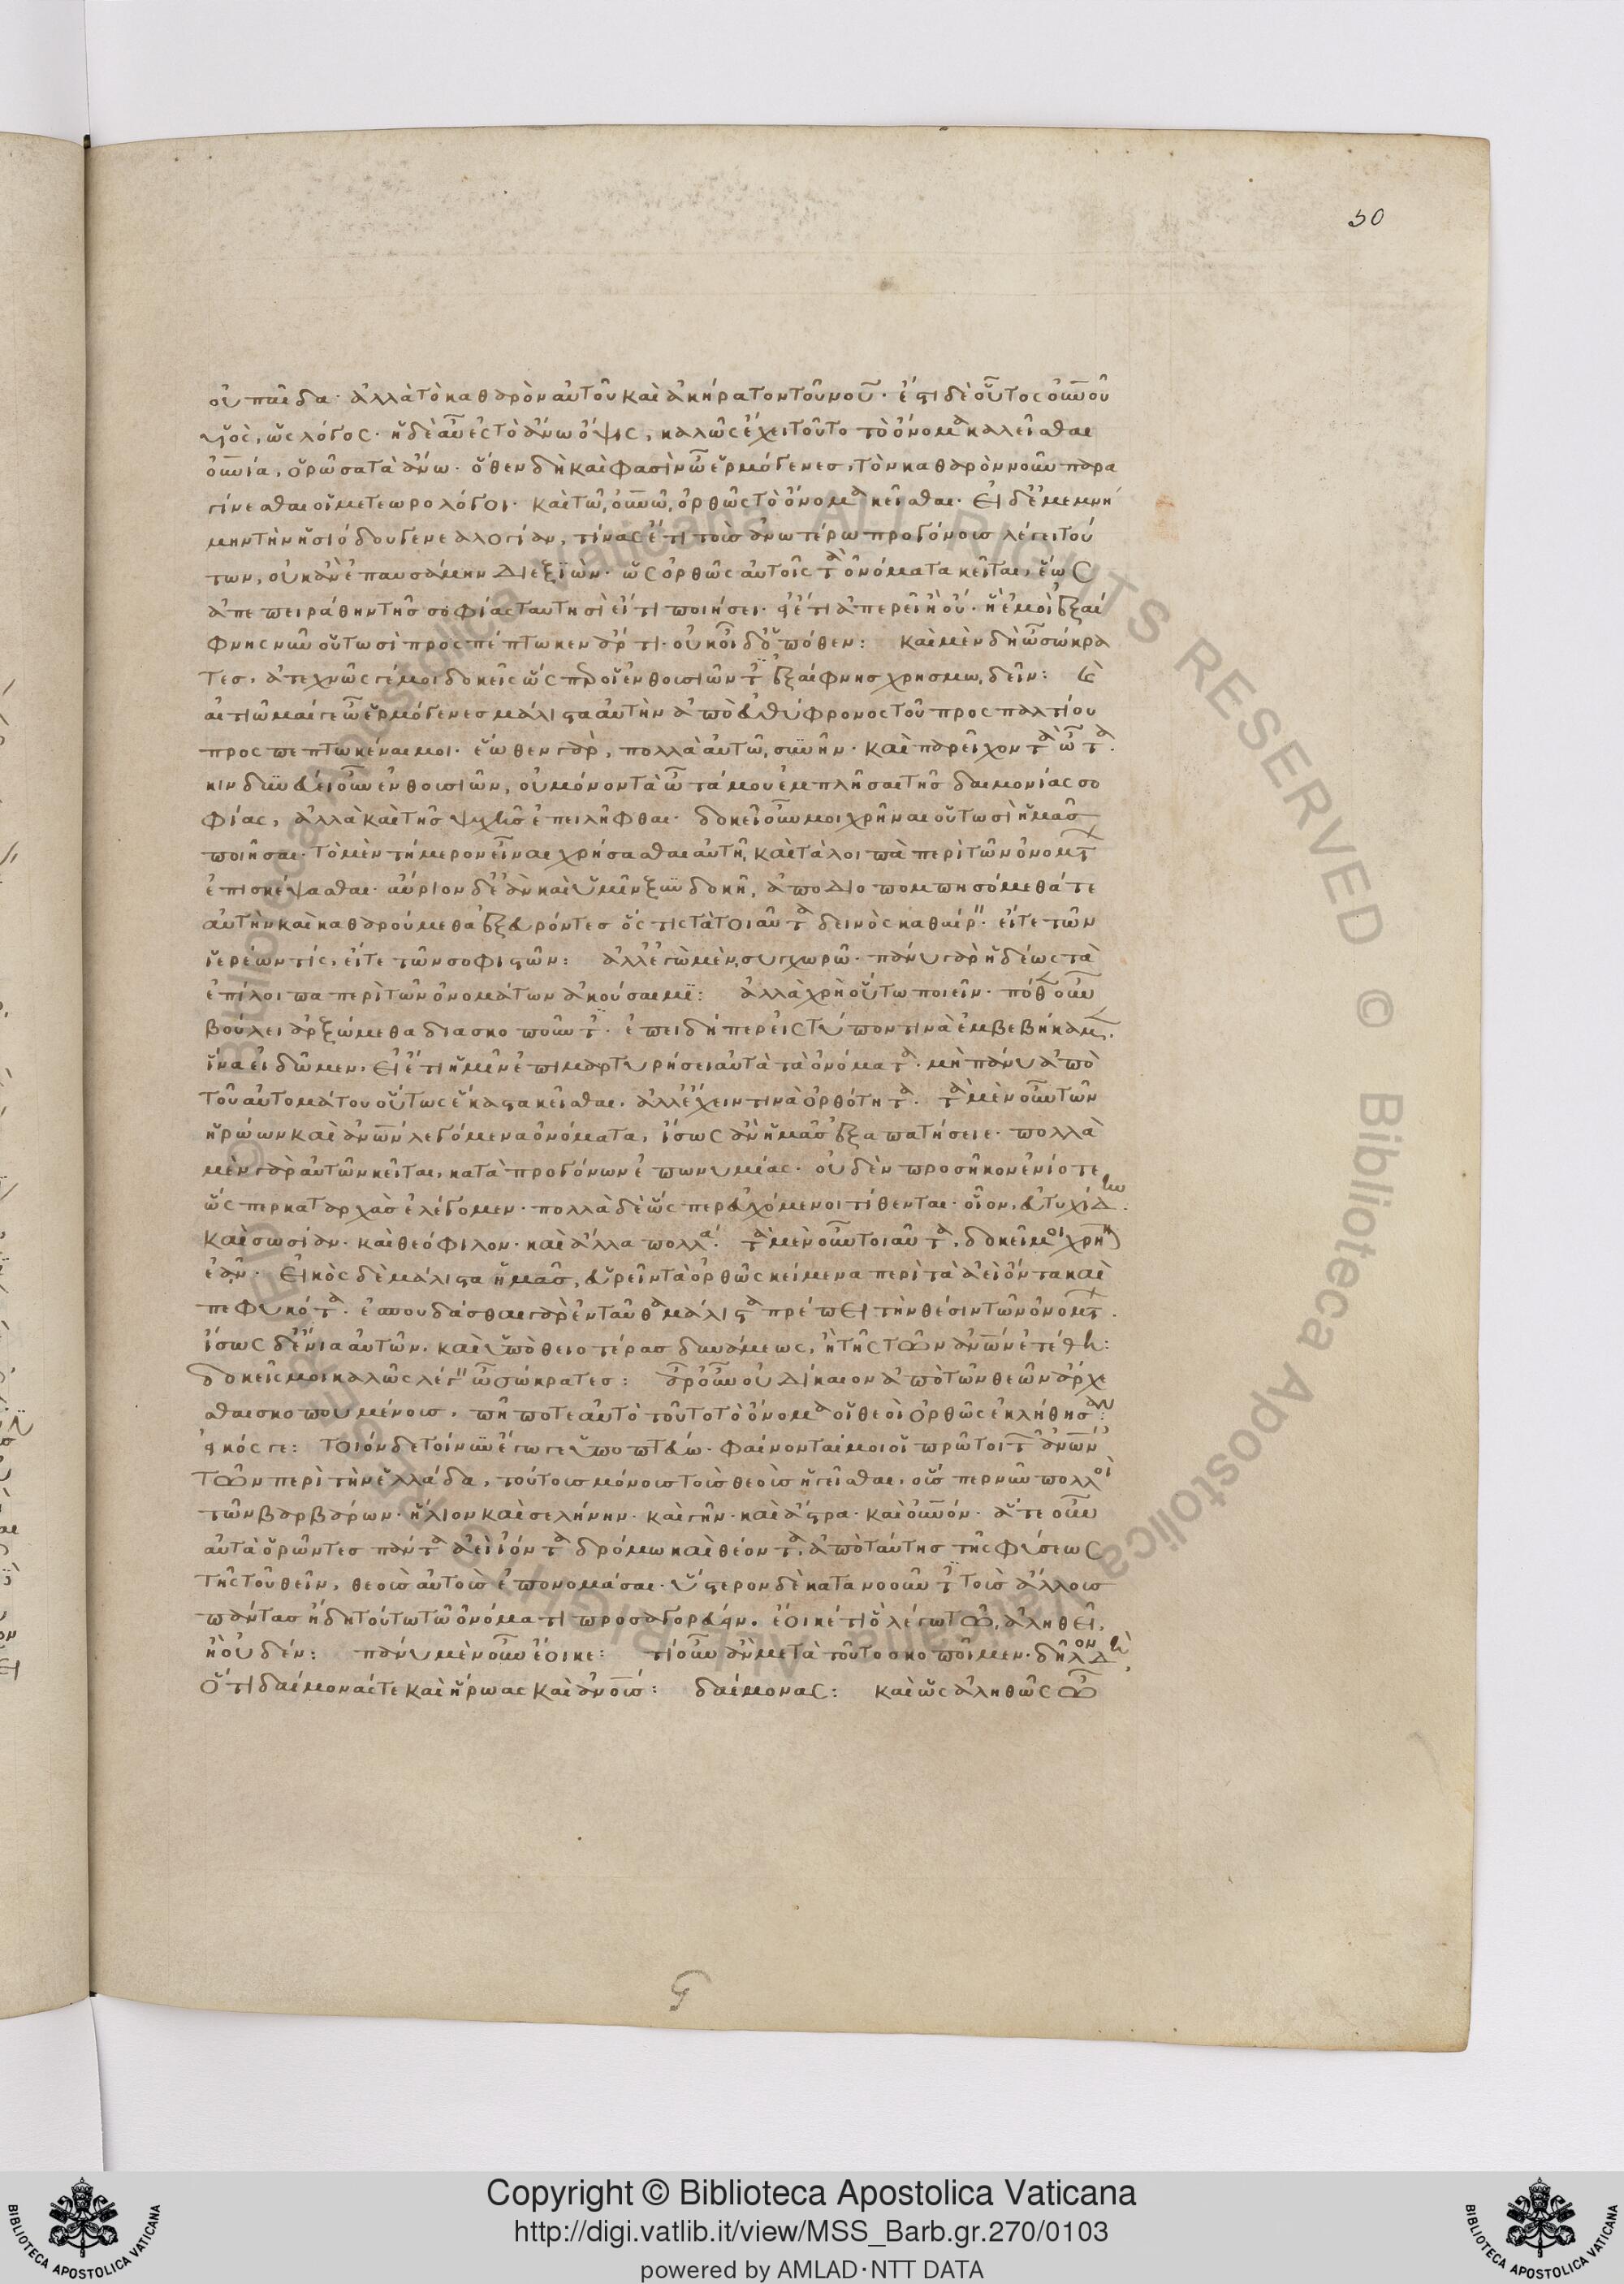 50
οὐ παῖδα· ἀλλὰ τὸ καθαρὸν αὐτοῦ καὶ ἀκήρατον τοῦ νοῦ· ἔστι δὲ οὗτος οὐνοῦ
υἱὸς, ὡς λόγος· ἡ δὲ αὖ ἐς τὸ ἄνω ὄψις, καλῶς ἔχει τοῦτο τὸ ὄνομα καλεῖσθαι
οὐνία, ὁρῶσα τὰ ἄνω· ὅθεν δὴ καὶ φασὶν ὦ ἑρμόγενες, τὸν καθαρὸν νοῦν παρα
γίνεσθαι οἱ μετεωρολόγοι· καὶ τῶ οὐνῶ ὀρθῶς τὸ ὄνομα κεῖσθαι· εἰ δ' ἐμεμνή
μην τὴν ἡσιόδου γενεαλογίαν, τίνας ἔτι τοὺς ἀνωτέρω προγόνους λέγει τού
των, οὐκ ἂν ἐπαυσάμην διεξιὼν· ὡς ὀρθῶς αὐτοῖς τὰ ὀνόματα κεῖται, ἕως
ἀπεπειράθην τῆς σοφίας ταυτησὶ εἴ τι ποιήσει· εἰ ἔτι ἀπερεῖ ἢ οὔ· ἡ ἐμοὶ ἐξαί
φνης νῦν οὑτωσὶ προσπέπτωκεν ἄρτι· οὐκ οἶδ' ὁπόθεν: καὶ μὲν δὴ ὦ σώκρα
τες, ἀτεχνῶς γέ μοι δοκεῖς ὥσπερ οἱ ἐνθουσιῶντες ἐξαίφνης χρησμωδεῖν: καὶ
αἰτιῶμαί γε ὦ ἑρμόγενες μάλιστα αὐτὴν ἀπὸ εὐθύφρονος τοῦ προσπαλτίου
προσπεπτωκέναι μοι· ἕωθεν γὰρ, πολλὰ αὐτῶ συνῆν· καὶ παρεῖχον τὰ ὦτα.
κινδυνεύει οὖν ἐνθουσιῶν, οὐ μόνον τὰ ὦτά μου ἐμπλῆσαι τῆς δαιμονίας σο
φίας, ἀλλὰ καὶ τῆς ψυχῆς ἐπειλῆφθαι· δοκεῖ οὖν μοι χρῆναι οὑτωσὶ ἡμᾶς
ποιῆσαι· τὸ μὲν τήμερον εἶναι χρήσασθαι αὐτῆ, καὶ τὰ λοιπὰ περὶ τῶν ὀνομάτων
ἐπισκέψασθαι· αὔριον δὲ ἂν καὶ ὑμῖν ξυνδοκῆ, ἀποδιοπομπησόμεθά τε
αὐτὴν καὶ καθαρούμεθα ἐξευρόντες ὅς τις τὰ τοιαῦτα δεινὸς καθαίρειν· εἴτε τῶν
ἱερέων τίς, εἴτε τῶν σοφιστῶν: ἀλλ' ἐγὼ μὲν συγχωρῶ· πάνυ γὰρ ἡδέως τὰ
ἐπίλοιπα περὶ τῶν ὀνομάτων ἀκούσαιμι: ἀλλὰ χρὴ οὕτω ποιεῖν· πόθεν οὖν
βούλει ἀρξώμεθα διασκοποῦντες· ἐπειδή περ εἰς τύπον τινὰ ἐμβεβήκαμεν.
ἵνα εἰδῶμεν, εἰ ἔτι ἡμῖν ἐπιμαρτυρήσει αὐτὰ τὰ ὀνόματα· μὴ πάνυ ἀπὸ
τοῦ αὐτομάτου οὕτως ἕκαστα κεῖσθαι, ἀλλ' ἔχειν τινὰ ὀρθότητα. τὰ μὲν οὖν τῶν
ἡρώων καὶ ἀνῶν λεγόμενα ὀνόματα, ἴσως ἂν ἡμᾶς ἐξαπατήσειε· πολλὰ
μὲν γὰρ αὐτῶν κεῖται, κατὰ προγόνων ἐπωνυμίας· οὐδὲν προσῆκον ἐνίοτε
ὥς περ κατ' αρχὰς ἐλέγομεν· πολλὰ δὲ ὥς περ εὐχόμενοι τίθενται· οἷον, εὐτυχίδην.
καὶ σωσίαν· καὶ θεόφιλον· καὶ ἄλλα πολλά· τὰ μὲν οὖν τοιαῦτα, δοκεῖ μοι χρῆναι
ἐᾶν· εἰκὸς δὲ μάλιστα ἡμᾶς, εὑρεῖν τὰ ὀρθῶς κείμενα περὶ τὰ ἀεὶ ὄντα καὶ
πεφυκότα. ἐσπουδάσθαι γὰρ ἐνταῦθα μάλιστα πρέπει τὴν θέσιν τῶν ὀνομάτων.
ἴσως δ' ἔνια αὐτῶν, καὶ ὑπὸ θειοτέρας δυνάμεως, ἢ τῆς τῶν ἀνῶν ἐτέθη:
δοκεῖς μοι καλῶς λέγειν ὦ σώκρατες: ἆρ' οὖν οὐ δίκαιον ἀπὸ τῶν θεῶν ἄρχε
σθαι σκοπουμένους, πῆ ποτε αὐτὸ τοῦτο τὸ ὄνομα οἱ θεοὶ ὀρθῶς ἐκλήθησαν:
εἰκός γε: τοιόνδε τοίνυν ἔγωγε ὑποπτεύω· φαίνονταί μοι οἱ πρῶτοι τῶν ἀνῶν
τῶν περὶ τὴν ἑλλάδα, τούτους μόνους τοὺς θεοὺς ἡγεῖσθαι, οὕς περ νῦν πολλοὶ
τῶν βαρβάρων· ἥλιον καὶ σελήνην· καὶ γῆν· καὶ ἄστρα· καὶ οὐνόν· ἅτε οὖν
αὐτὰ ὁρῶντες πάντα ἀεὶ ἰόντα δρόμω καὶ θέοντα, ἀπὸ ταύτης τῆς φύσεως
τῆς τοῦ θεῖν, θεοὺς αὐτοὺς ἐπονομάσαι· ὕστερον δὲ κατανοοῦντες τοὺς ἄλλους
πάντας ἤδη τούτω τῶ ὀνόματι προσαγορεύειν. ἔοικέ τι ὃ λέγω τῶ ἀληθεῖ,
ἢ οὐδέν: πάνυ μὲν οὖν ἔοικε: τί οὖν ἂν μετὰ τοῦτο σκοποῖμεν· δῆλον δὴ
ὅτι δαίμονάς τε καὶ ἥρωας καὶ ἀνους: δαίμονας: καὶ ὡς ἀληθῶς ὦ
Copyright © Biblioteca Apostolica Vaticana
http://digi.vatlib.it/view/MSS_Barb.gr.270/0103
powered by AMLAD·NTT DATA